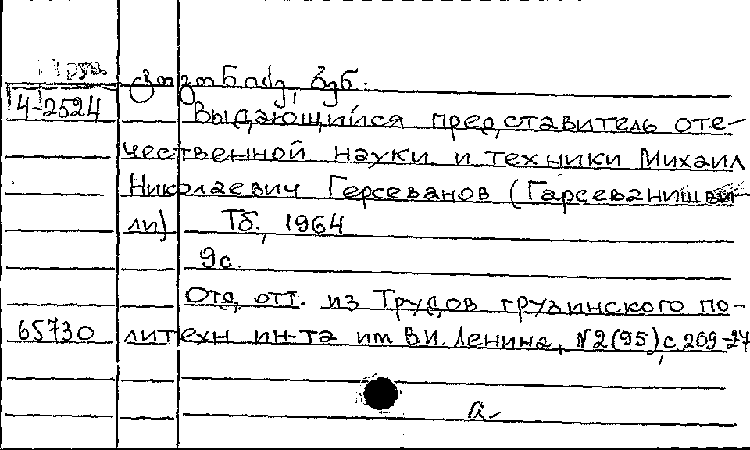 4-2524
Выдающийся представитель оте-
чественной науки и техники Михаил
Николаевич Герсеванов (Гарсеванишви-
ли) Тб., 1964
9с.
Отд. отт. из Трудов грузинского по-
65730 литехн ин-та им В.И. Ленина, №2(95), с 209-14